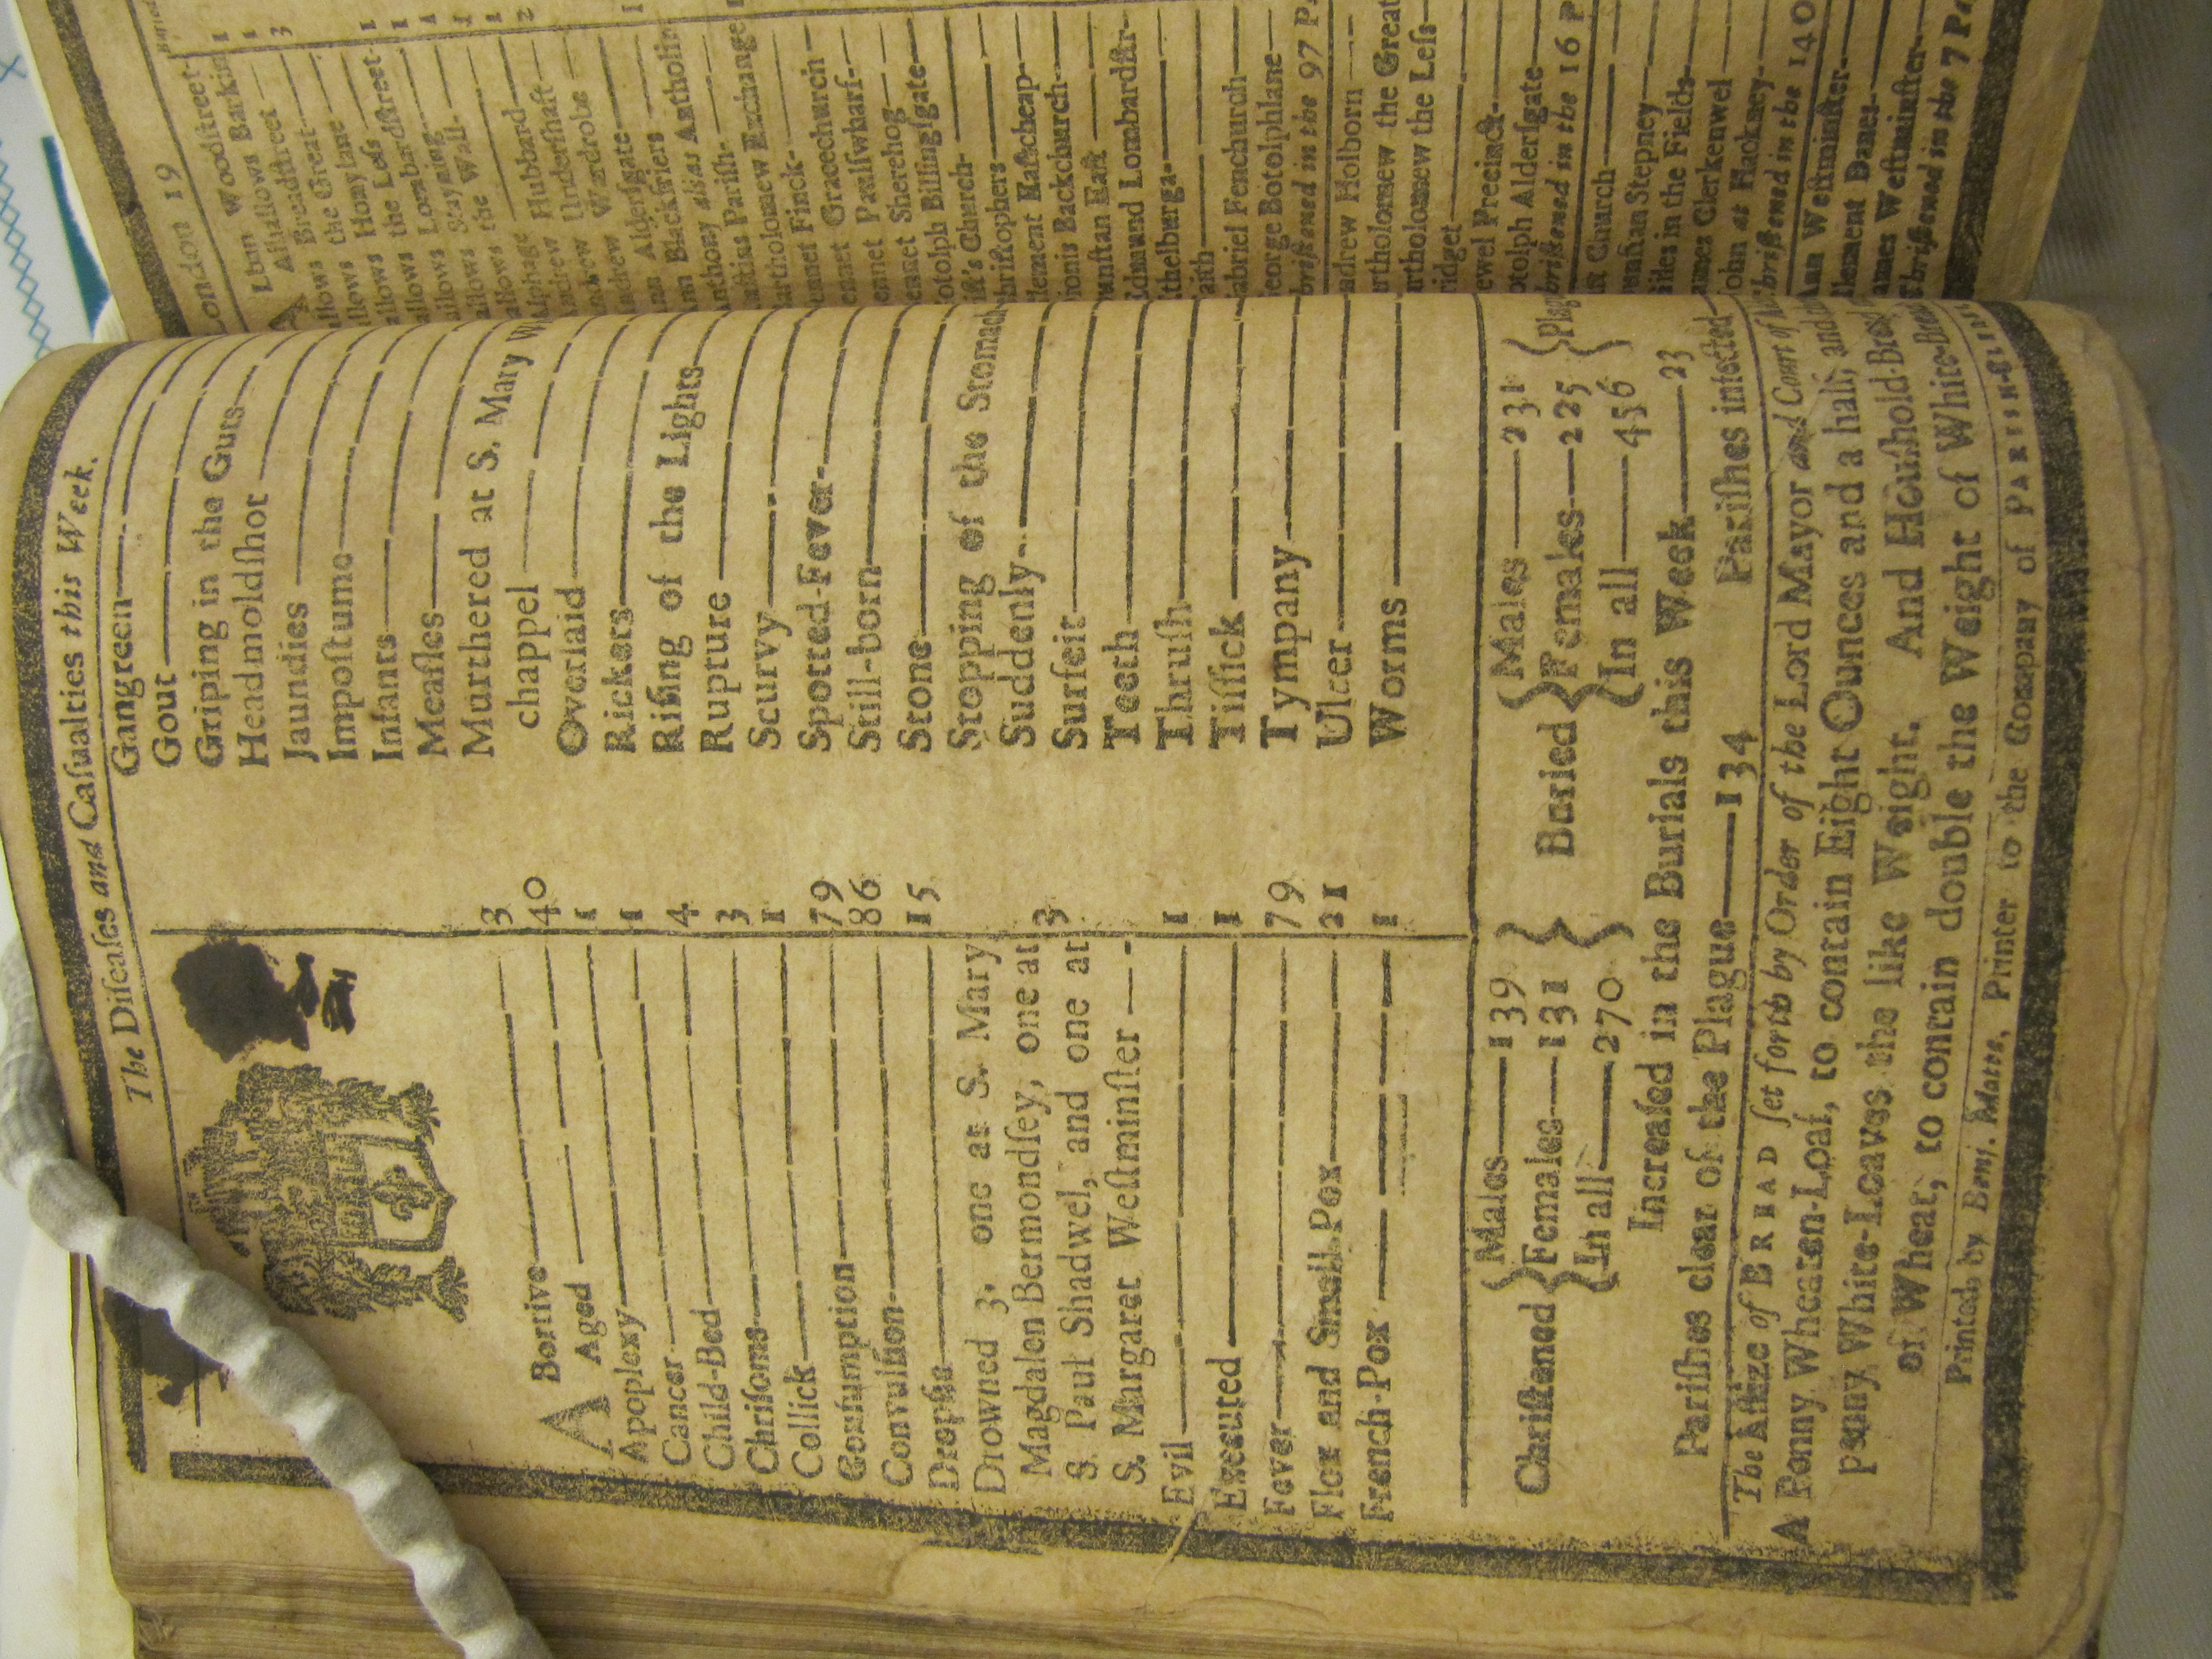 The Diſeaſes and Caſualties this Week.
ABortive 3
Aged 40
Apoplexy 1
Cancer 1
Child-Bed 4
Chriſoms 3
Collick 1
Conſumption 79
Convulſion 86
Dropſie 15
Drowned 3, one at S. Mary
Magdalen Bermondſey, one at
S. Paul Shadwel, and one at
S. Margaret Weſtminſter 3
Evil 1
Executed 1
Fever 79
Flox and Small Pox 21
French-Pox 1
Gangreen
Gout
Griping in the Guts
Headmoldſhot
Jaundies
Impoſtume
Infants
Meaſles
Murthered at S. Mary
chappel
Overlaid
Rickets
Riſing of the Lights
Rupture
Scurvy
Spotted-Fever
Still-born
Stone
Stopping of the Stomach
Suddenly
Surfeit
Teeth
Thruſh
Tiſſick
Tympany
Ulcer
Worms
Chriſtened
Males 139
Females 131
In all 270
Buried
Males 231
Females 225
In all 456
Plag
Increaſed in the Burials this Week 23
Pariſhes clear of the Plague 134 Pariſhes infected
The Aſſize of BREAD ſet forth by Order of the Lord Mayor and Court of
A Penny Wheaten-Loaf, to contain Eight Ounces and a half, and
penny White-Loaves the like Weight. And Houſhold-Bread
of Wheat, to contain double the Weight of White-Bread
Printed by Benj. Motte, Printer to the Company of PARISH-CLERKS
London 19
Buried
Lban Woodſtreet 1
Alhallows Barkin 1
Alhallows Breadſtreet 3
the Great
Honylane
the Leſs 1
Lombardſtreet 1
Stayning 1
the Wall 1
Alphage 1
Andrew Hubbard 2
Andrew Underſhaft
Andrew Wardrobe
Ann Alderſgate 1
Ann Blackfriers
Anthony alias Antholin
Pariſh
Bartholomew Exchange 1
Bennet Finck
Bennet Gracechurch
Bennet Paulſwharf
Bennet Sherehog
Botolph Billingſgate
Church
Chriſtophers
Clement Eaſtcheap
Dionis Backchurch
Dunſtan Eaſt
Edmund Lombardſtr
Ethelburga
Faith
Gabriel Fenchurch
George Botolphlane
Chriſtened in the 97 Pa
Andrew Holborn
Bartholomew the Great
Bartholomew the Leſs
Bridget
Bridewel Precinct
Botolph Alderſgate
Chriſtened in the 16 P
Church
Dunſtan Stepney
Giles in the Fields
James Clerkenwel
John at Hackney
Chriſtened in the 14 O
Ann Weſtminſter
Clement Danes
James Weſtminſter
Chriſtened in the 7 Pa